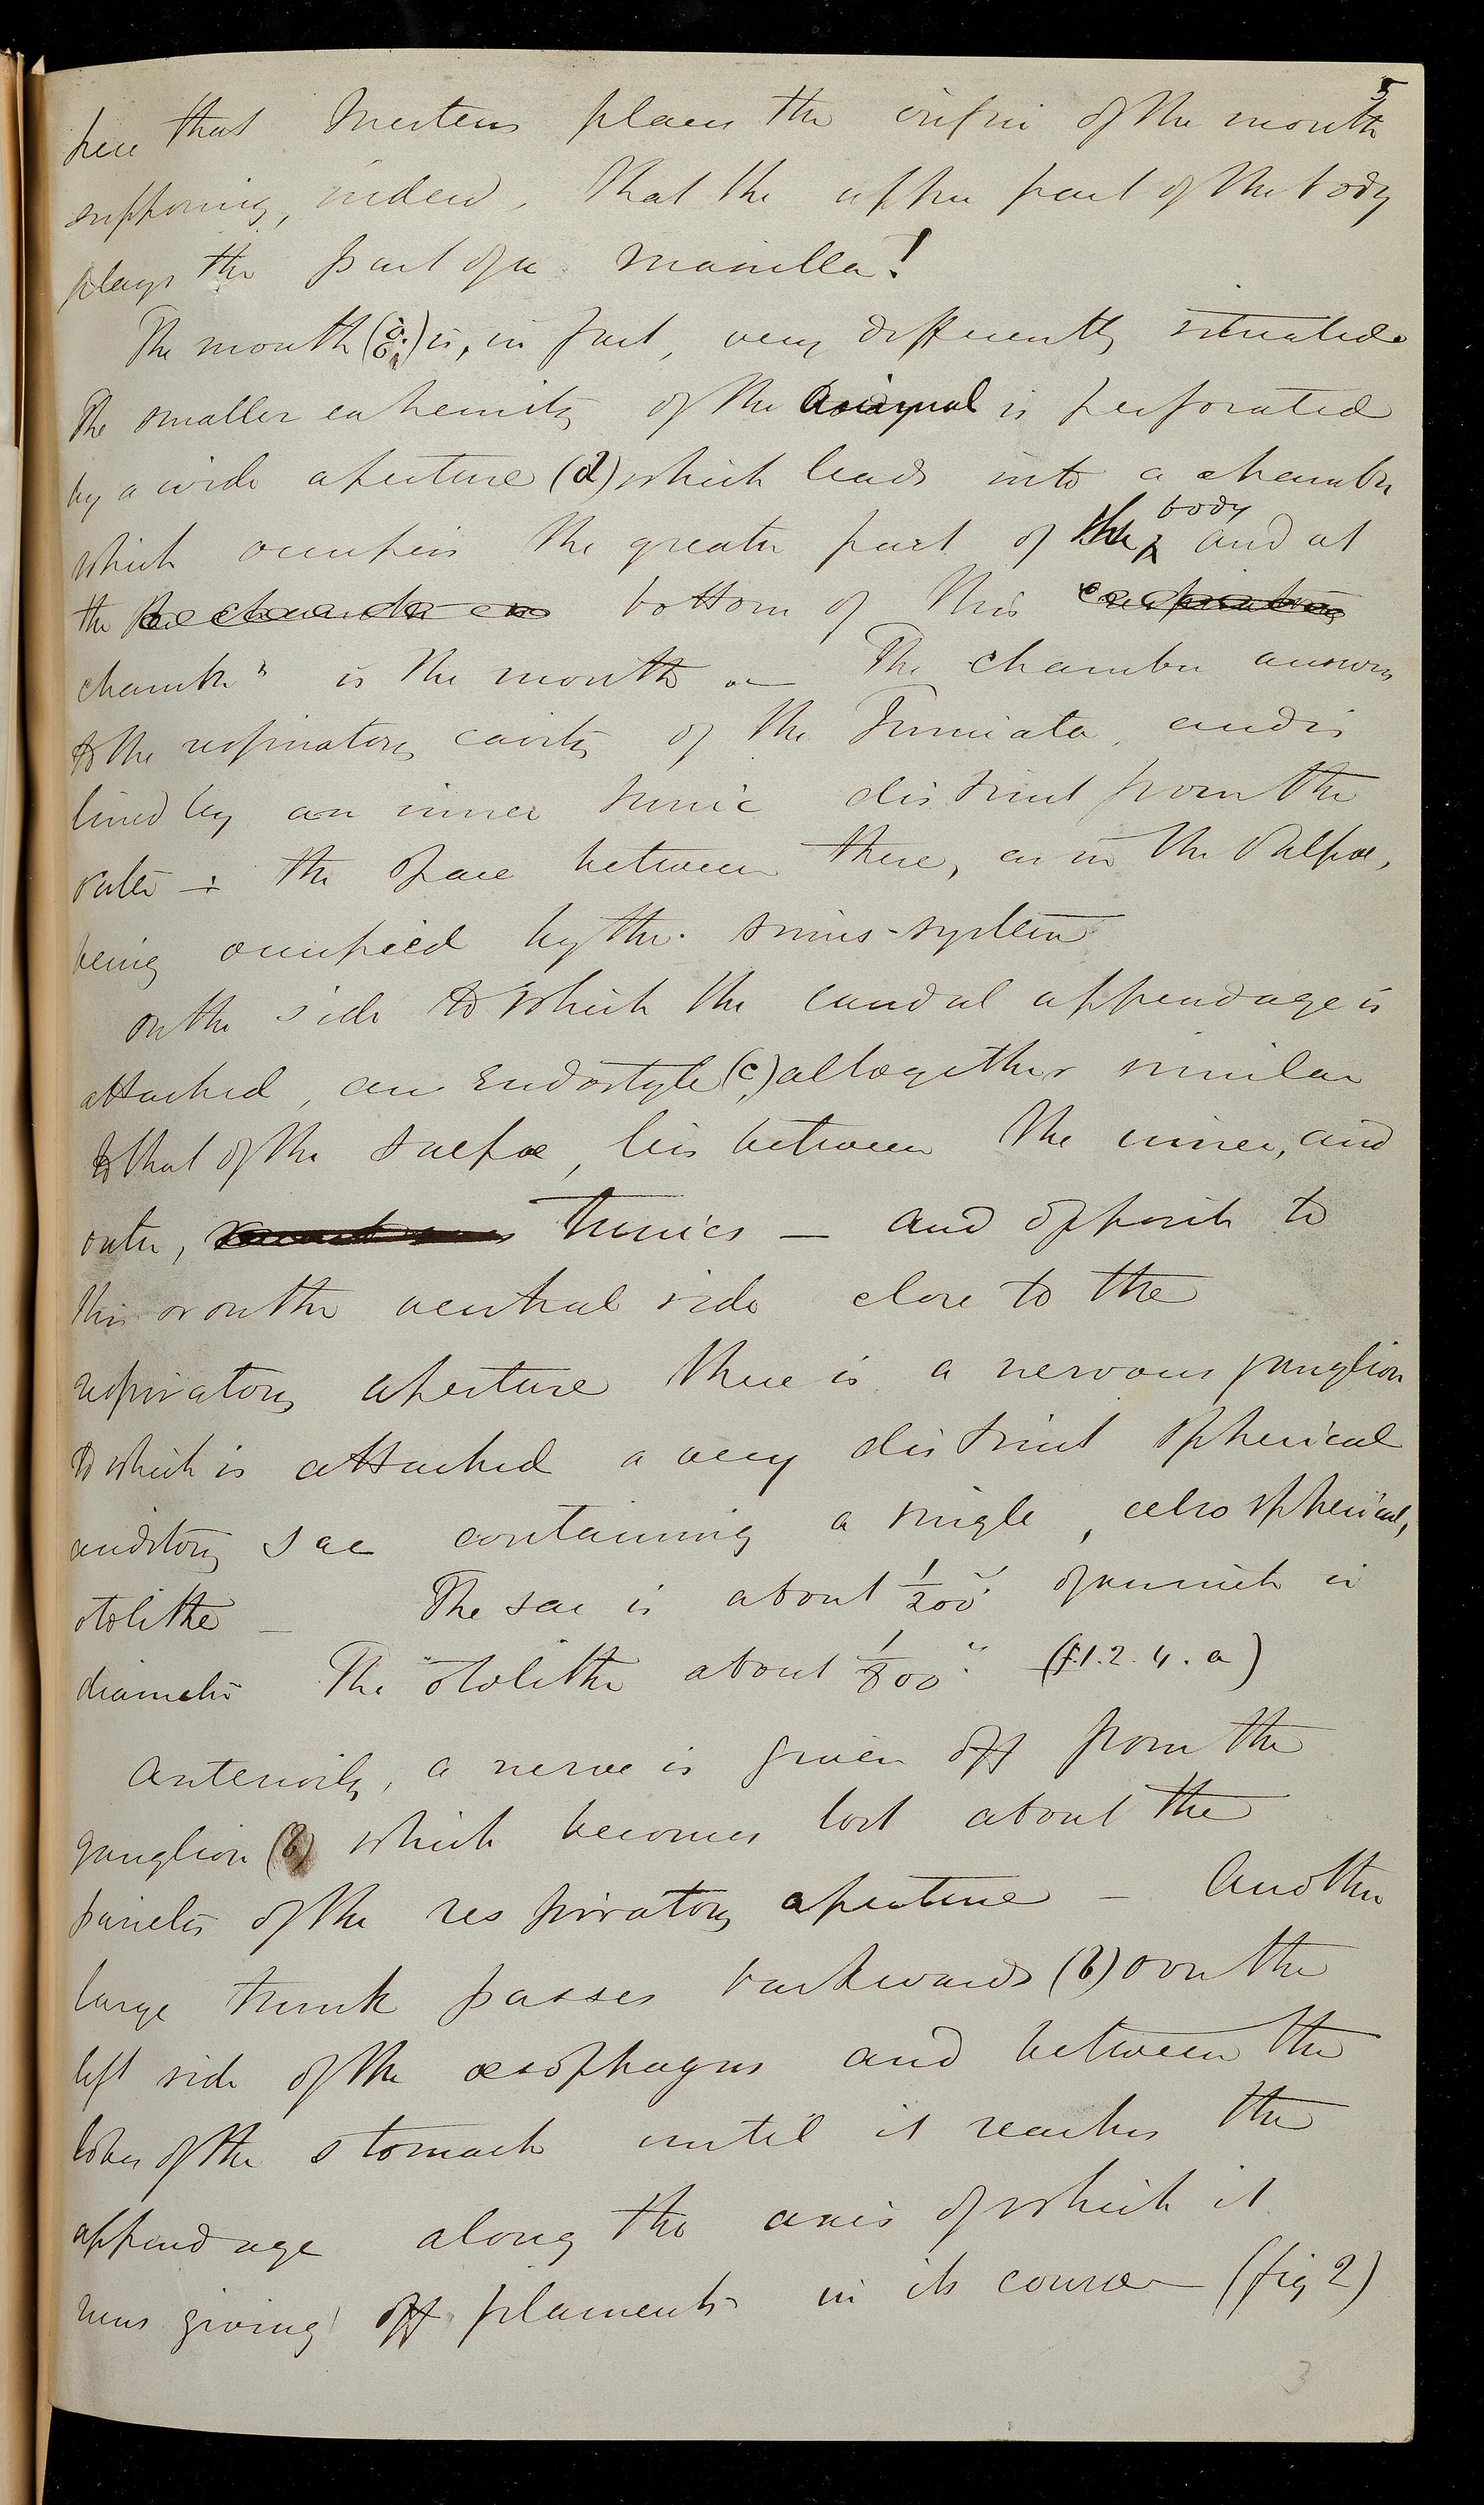 5
here that Mertens places the orifice of the mouth
supposing, indeed, that the upper part of the body
plays the part of a maxilla!
The mouth (o.) is, in fact, very differently situated.
The smaller extremity of the animal is perforated
by a wide aperture (d) which leads into a chamber
body
which occupies the greater part of the and at
the bottom of this respiratory
chamber" is the mouth – The chamber answers
to the respiratory cavity of the Tunicata, and is
lined by an inner tunic distinct from the
outer – the space between these, as in the Salpæ,
being occupied by the sinus-system
On the side to which the caudal appendage is
attached, an Endostyle (c,) altogether similar
to that of the Salpæ, lies between the inner, and
outer, tunics – and opposite to
this or on the ventral side close to the
respiratory aperture there is a nervous ganglion
to which is attached a very distinct spherical
auditory sac containing a single, also spherical,
otolithe – The sac is about 1/200" of an inch in
diameter The otolithe about 1/800" (f.1.2.4.a)
Anteriorly, a nerve is given off from the
ganglion (b) which becomes lost about the
parietes of the respiratory aperture – Another
large trunk passes backwards (b) over the
left side of the œsophagus and between the
lobes of the stomach until it reaches the
appendage along the axis of which it
runs giving off filaments in its course – (fig 2)
3